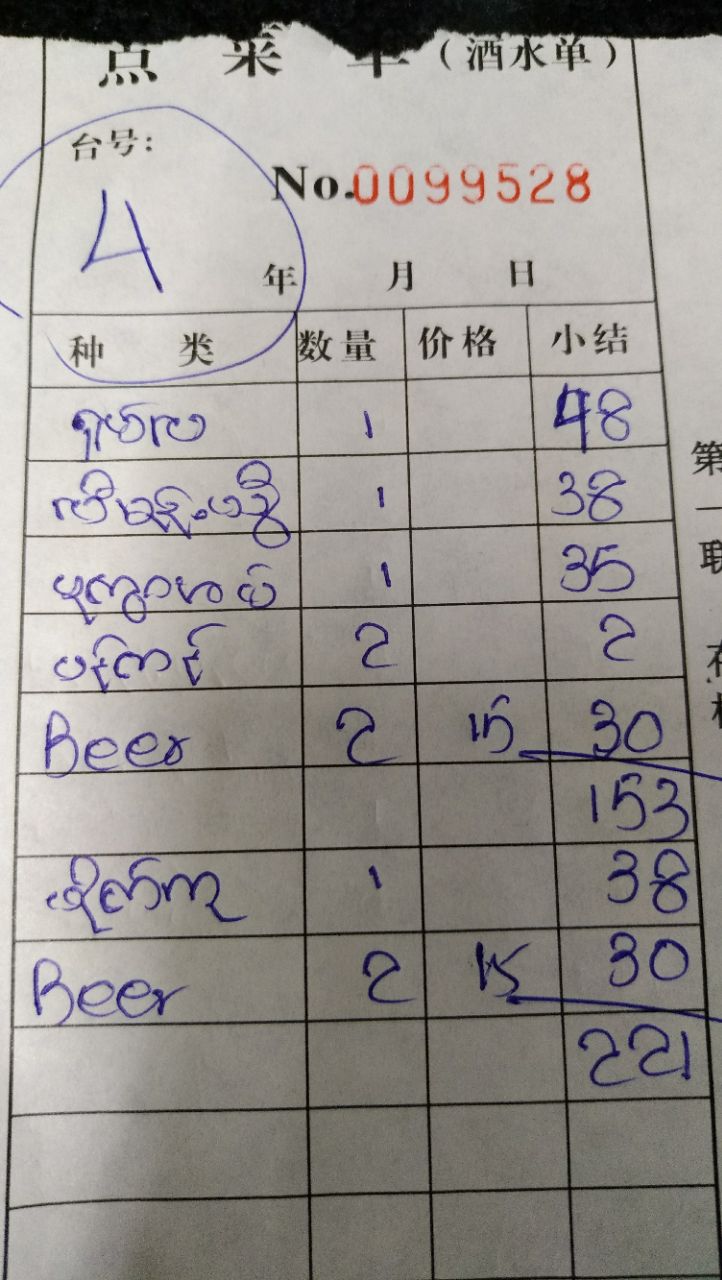 点 菜 单 (酒水单)
台号:
No.0099528
4
年 月 日
种 类 数量 价格 小结
1 48
1 38
1 35
ပန်းကန် 2 2
Beer 2 15 30
153
1 38
Beer 2 15 30
221
第
一
联